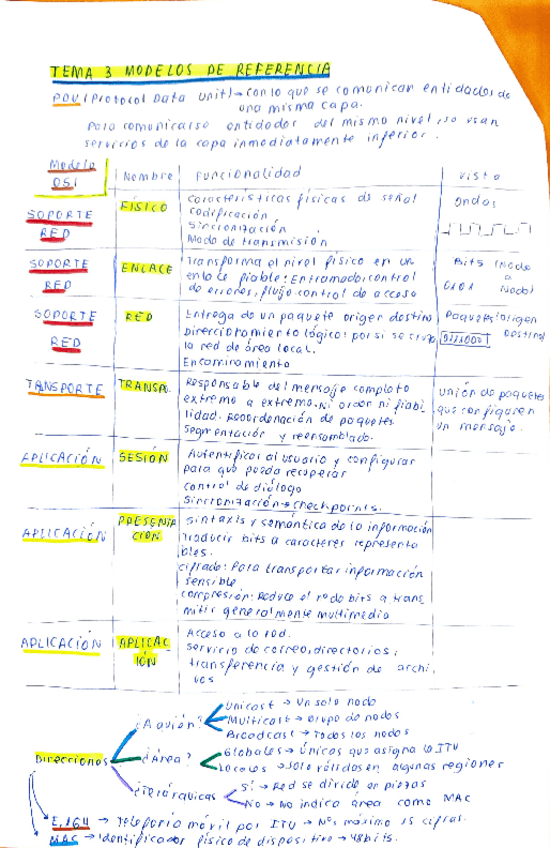 TEMA 3 MODELOS DE REFERENCIA
PDU (Protocol Data Unit) → con lo que se comunican entidades de
una misma capa.
Para comunicarse entidades del mismo nivel, se usan
servicios de la capa inmediatamente inferior.
Modelo
OSI
Nombre
Funcionalidad
Vista
SOPORTE
RED
FÍSICO
Características físicas de señal
Codificación
Sincronización
Modo de transmisión
Ondas
SOPORTE
RED
ENLACE
Transforma el nivel físico en un
enlace fiable: Entramado, control
de errores, flujo control de acceso
Bits (Nodo
0101 a
Nodo)
SOPORTE
RED
RED
Entrega de un paquete origen destino
Direccionamiento lógico: por si se cruza
la red de área local.
Encaminamiento
Paquetes (Origen
Destino)
TANSPORTE
TRANSP.
Responsable del mensaje completo
extremo a extremo. Ni orden ni fiabi
lidad. Reoordenación de paquetes
Segmentación y reensamblado.
Unión de paquetes
que configuren
un mensaje.
APLICACIÓN
SESIÓN
Autentificar al usuario y configurar
para que pueda recuperar
Control de diálogo
Sincronización → checkpoints.
APLICACIÓN
PRESENTA
CIÓN
Sintaxis y semántica de la información
Traducir bits a caracteres representa
bles.
Cifrado: Para transportar información
sensible
Compresión: Reduce el nº de bits a trans
mitir generalmente multimedia
APLICACIÓN
APLICAC
IÓN
Acceso a la red.
Servicio de correo, directorios,
transferencia y gestión de archi
vos
Direcciones
¿A quién?
Unicast → Un solo nodo
Multicast → Grupo de nodos
Broadcast → Todos los nodos
¿Área?
Globales → Únicos que asigna la ITU
Locales → Sólo válidos en algunas regiones
¿Jerárquicas
Sí → Red se divide en piezas
No → No indica área como MAC
E.164 → Telefonía móvil por ITU → Nºs máximo 15 cifras.
MAC → Identificador físico de dispositivo → 48bits.